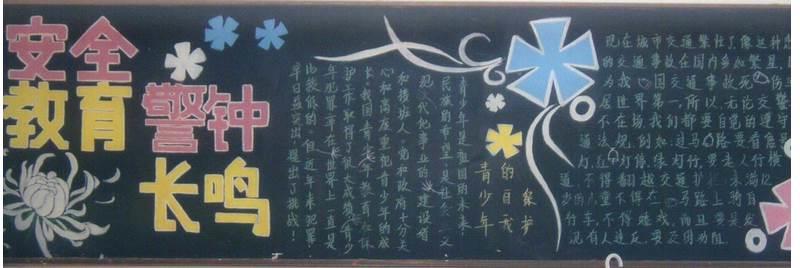 安全
教育 警钟
长鸣
青少年是祖国的未来
民族的希望是社会主义
现代化事业的建设者
和接班人。党和政府十分关
心和高度重视青少年的成
长,我国青少年教育和保
护工作取得了很大成绩青少
年犯罪率在世界上一直是
比较低的。但近年来犯罪
率日益突出提出了挑战!
青少年
的自我
保护
现在城市交通繁忙了像这种
的交通事故在国内多如繁星,因
为我国交通事故死伤
居世界第一,所以,无论交警
不在场,我们都要自觉的遵守
通法规,例如:过马路要看信
灯,红灯停、绿灯行,要走人行横
道,不得翻越交通护栏,未满12
岁的儿童不得在马路上骑自
行车,不得嬉戏,而且要是发
况有人违反,要及时劝阻.